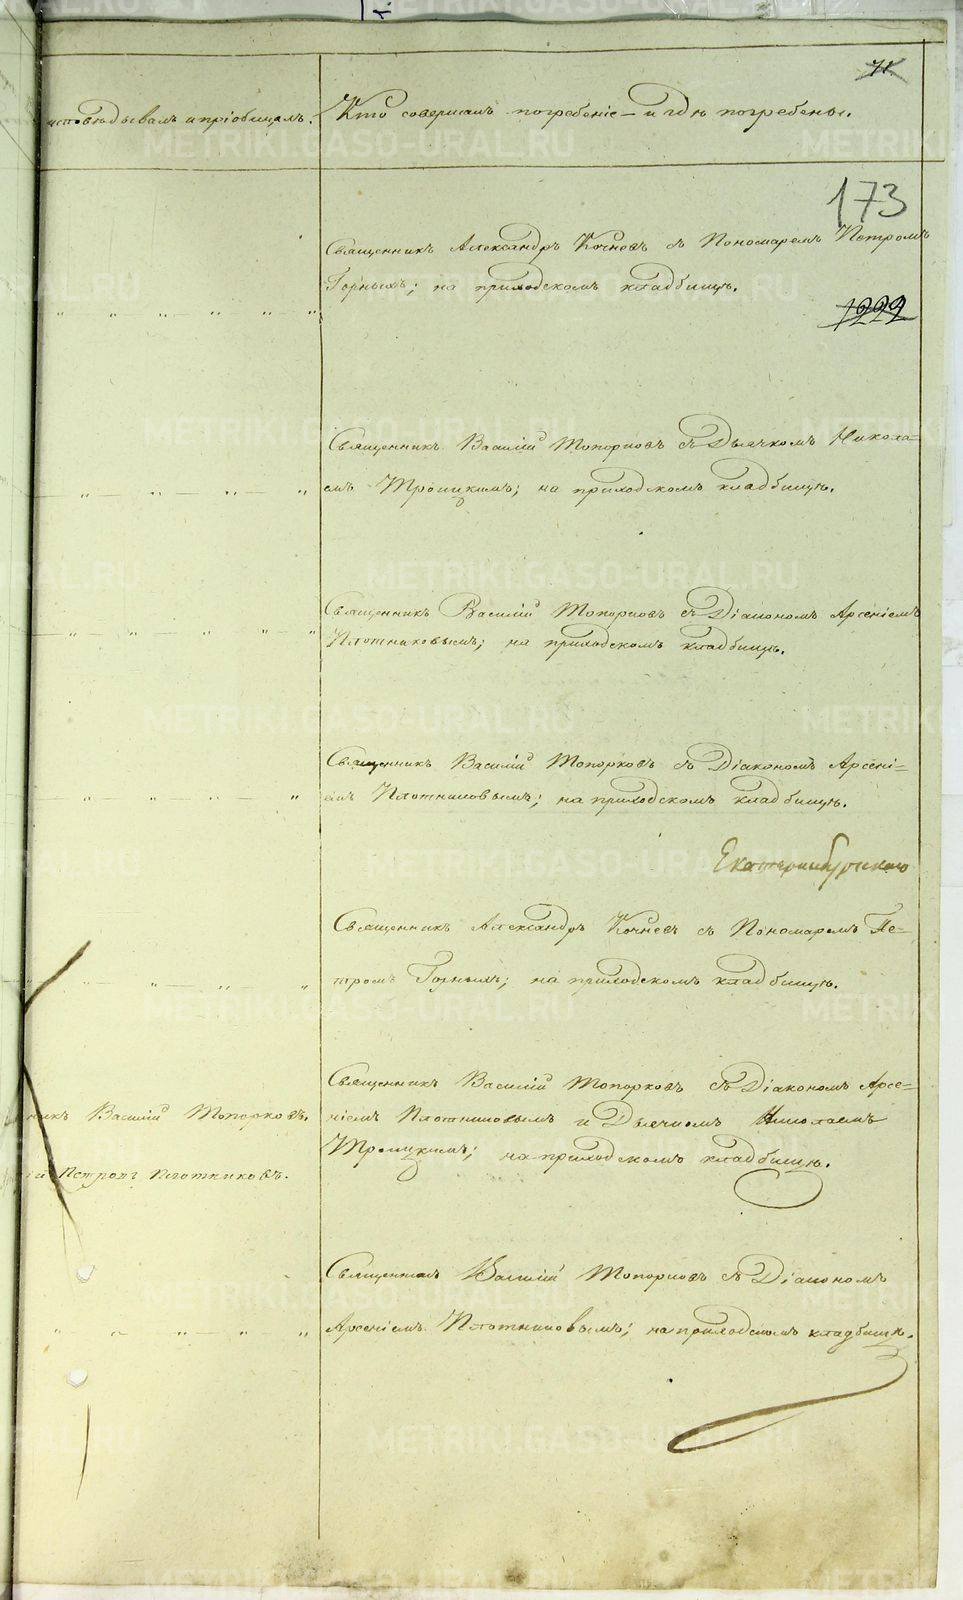 71.
исповѣдывалъ и пріобщалъ.
Кто совершалъ погребеніе – и гдѣ погребены.
173
Священникъ Александръ Кочневъ съ Пономаремъ Петромъ
Горнымъ; на приходскомъ кладбищѣ.
1222
Священникъ Василій Топорковъ съ Дьячкомъ Никола-
емъ Троицкимъ; на приходскомъ кладбищѣ.
Священникъ Василій Топорковъ съ Діакономъ Арсеніемъ
Плотниковымъ; на приходскомъ кладбищѣ.
Священникъ Василій Топорковъ съ Діакономъ Арсені-
емъ Плотниковымъ; на приходскомъ кладбищѣ.
Екатеринбургскаго
Священникъ Александръ Кочневъ съ Пономаремъ Пе-
тромъ Горнымъ; на приходскомъ кладбищѣ.
Священникъ Василій Топорковъ съ Діакономъ Арсе-
никъ Василій Топорковъ.
ніемъ Плотниковымъ и Дьячкомъ Николаемъ
Троицкимъ; на приходскомъ кладбищѣ.
Петровъ Плотниковъ.
Священникъ Василій Топорковъ съ Діакономъ
Арсеніемъ Плотниковымъ; на приходскомъ кладбищѣ.
METRIKI.GASO-URAL.RU